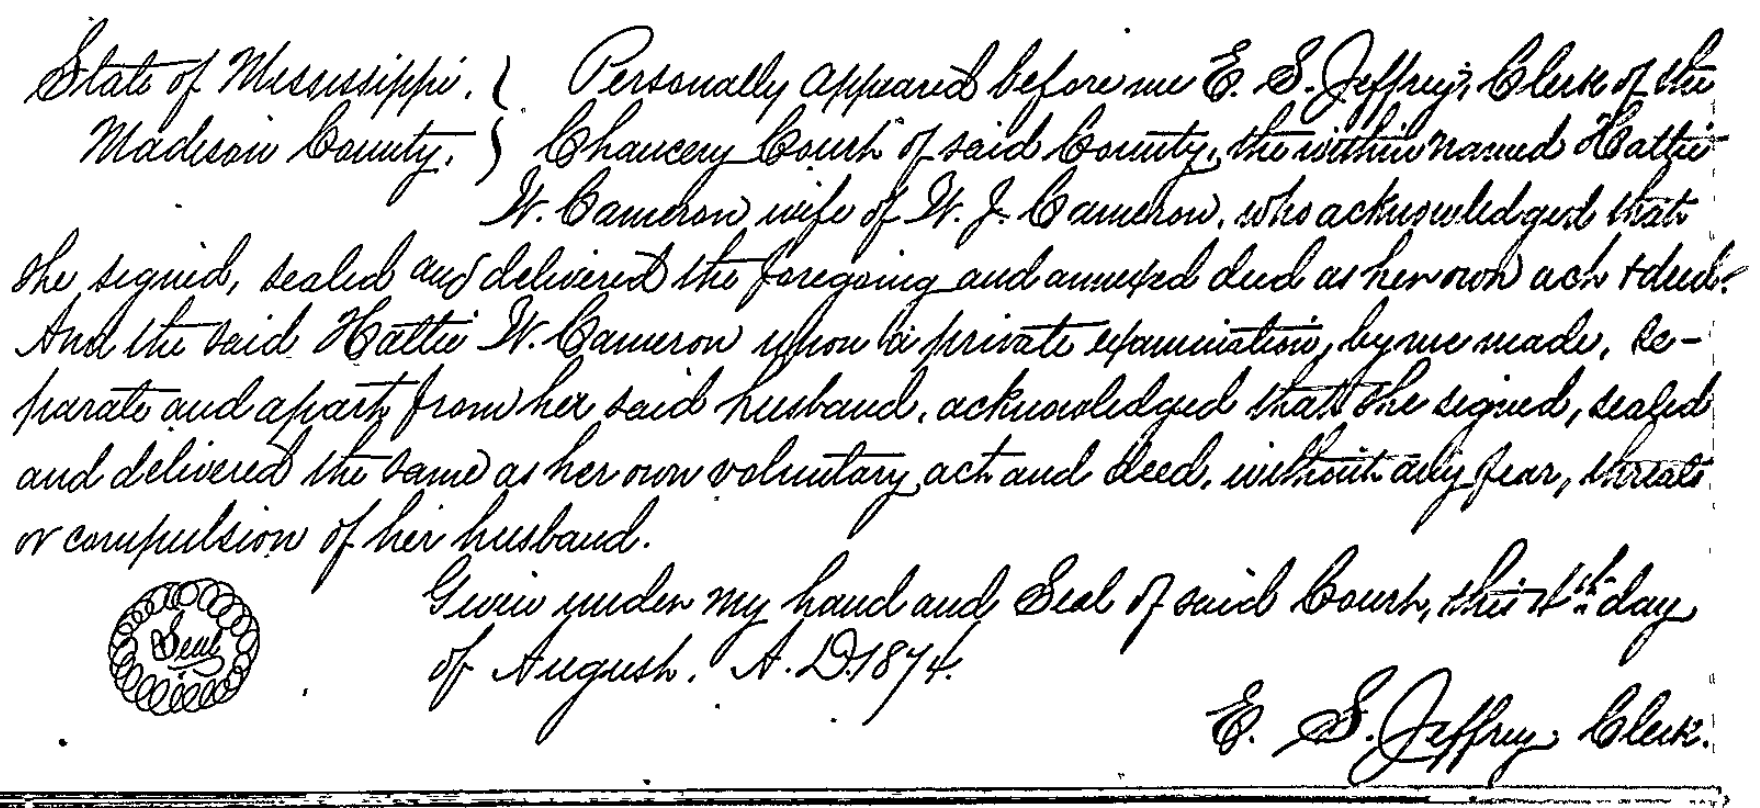 State of Mississippi. } Personally appeared before me E. S. Jeffrey, Clerk of the
Madison County. } Chancery Court of said County, the within named Hattie
W. Cameron wife of W. J. Cameron, who acknowledged that
she signed, sealed and delivered the foregoing and annexed deed as her own act & deed.
And the said Hattie W. Cameron upon a private examination, by me made, se-
parate and apart from her said husband, acknowledged that she signed, sealed
and delivered the same as her own voluntary act and deed, without any fear, threats
or compulsion of her husband.
Given under my hand and Seal of said Court, this 4th day
Seal
of August. A. D. 1874.
E. S. Jeffrey Clerk.